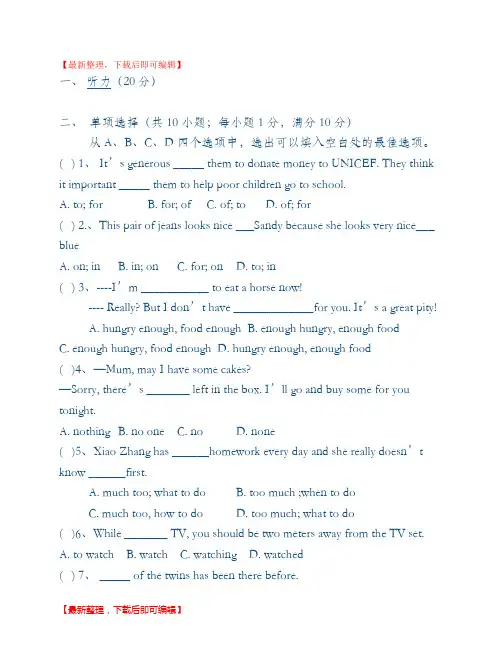 【最新整理，下载后即可编辑】
一、 听力（20分）
二、 单项选择（共10小题；每小题1分，满分10分）
从A、B、C、D四个选项中，选出可以填入空白处的最佳选项。
( ) 1、 It’s generous _____ them to donate money to UNICEF. They think
it important _____ them to help poor children go to school.
A. to; for B. for; of C. of; to D. of; for
( ) 2.、This pair of jeans looks nice ___Sandy because she looks very nice___
blue
A. on; in B. in; on C. for; on D. to; in
( ) 3、----I’m ___________ to eat a horse now!
---- Really? But I don’t have _____________for you. It’s a great pity!
A. hungry enough, food enough B. enough hungry, enough food
C. enough hungry, food enough D. hungry enough, enough food
( )4、—Mum, may I have some cakes?
—Sorry, there’s _______ left in the box. I’ll go and buy some for you
tonight.
A. nothing B. no one C. no D. none
( )5、Xiao Zhang has ______homework every day and she really doesn’t
know ______first.
A. much too; what to do B. too much ;when to do
C. much too, how to do D. too much; what to do
( )6、While _______ TV, you should be two meters away from the TV set.
A. to watch B. watch C. watching D. watched
( ) 7、 _____ of the twins has been there before.
【最新整理，下载后即可编辑】